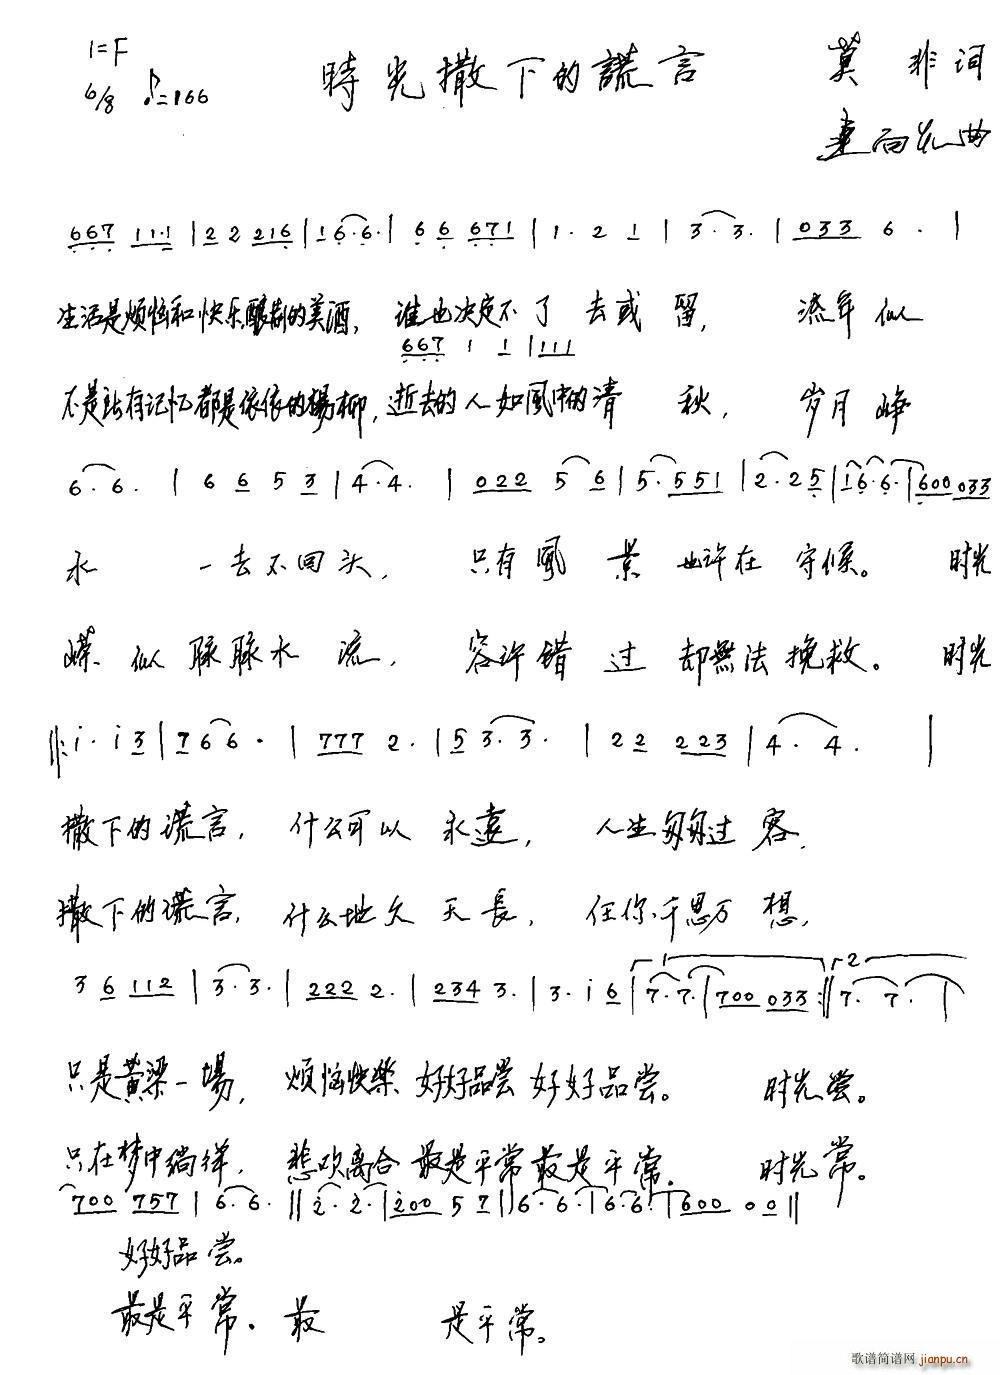 1=F
時光撒下的謊言 莫非词
6/8 ♪=166
曲
667 111·1 | 2 2 216 | 16·6· | 6 6 671 | 1· 2 1 | 3·3· | 033 6· |
生活是烦恼和快乐酿制的美酒, 谁也决定不了去或留, 流年似
667 1 1 | 111
不是所有记忆都是依依的楊柳, 逝去的人如風中的清秋, 岁月峥
6·6· | 6 6 5 3 | 4·4· | 022 5 6 | 5·551 | 2·25 | 16·6· | 600 033
水 一去不回头, 只有風景也许在守候。 时光
嵘似脉脉水流, 容许错过却無法挽救。 时光
‖: i· i 3 | 7 6 6· | 777 2· | 5 3·3· | 22 223 | 4·4· |
撒下的谎言, 什么可以永遠, 人生匆匆过客,
撒下的谎言, 什么地久天長, 任你千思万想,
3 6 112 | 3·3· | 222 2· | 234 3· | 3· i 6 | 1 7·7· | 700 033 :‖ 2 7· 7· |
只是黄粱一場, 烦恼快樂好好品尝好好品尝。 时光尝。
只在梦中徜徉, 悲欢离合最是平常最是平常. 时光常。
700 757 | 6·6· ‖ 2·2· | 200 5 7 ‖ 6·6· | 6·6· | 600 00 ‖
好好品尝。
最是平常. 最 是平常。
歌谱简谱网 jianpu.cn